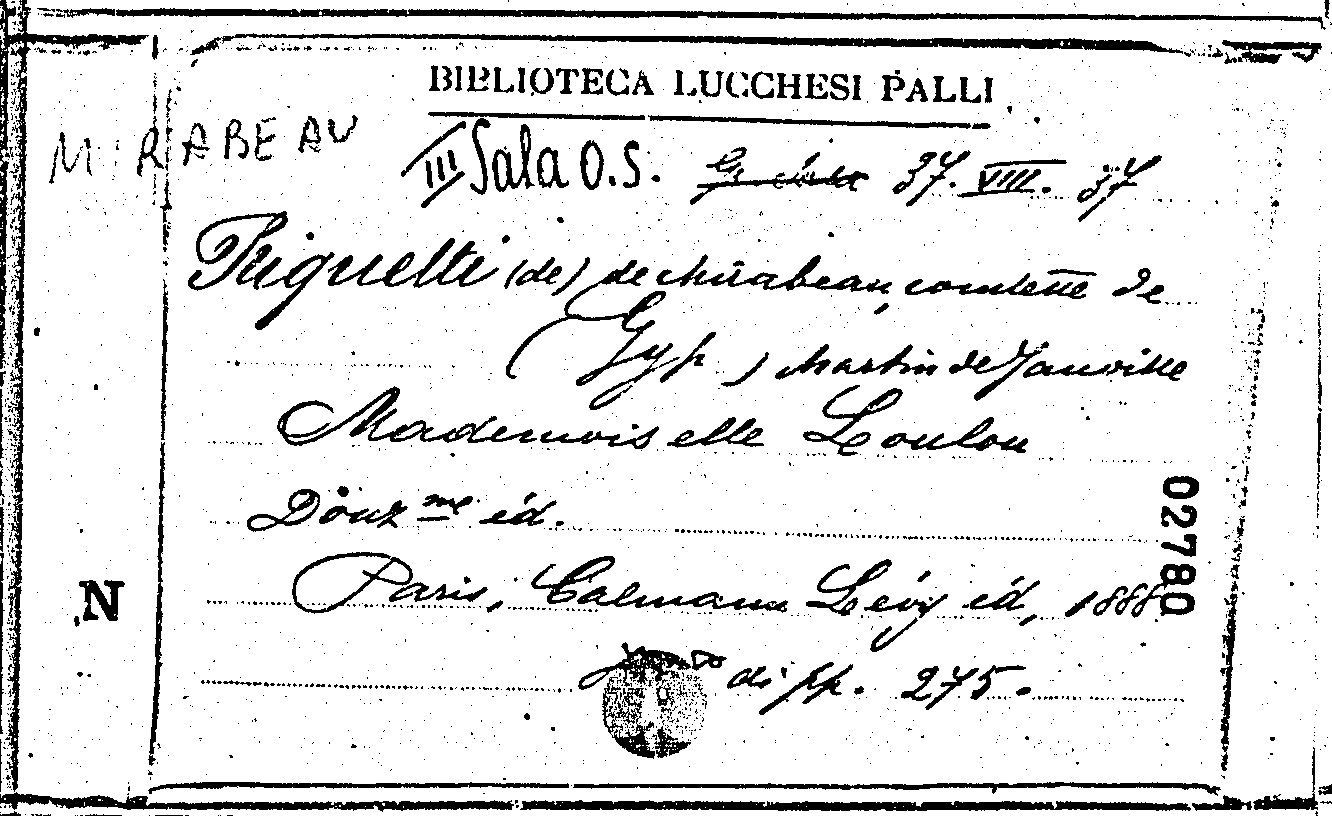 BIBLIOTECA LUCCHESI PALLI
MIRABEAU
III Sala O.S. 37. VIII. 37
Riquetti (de) de Mirabeau, comtesse de
(Gyp) Martin de Janville
Mademoiselle Loulou
Douz me éd.
Paris, Calmann Lévy éd, 1888
di pp. 275.
02780
N